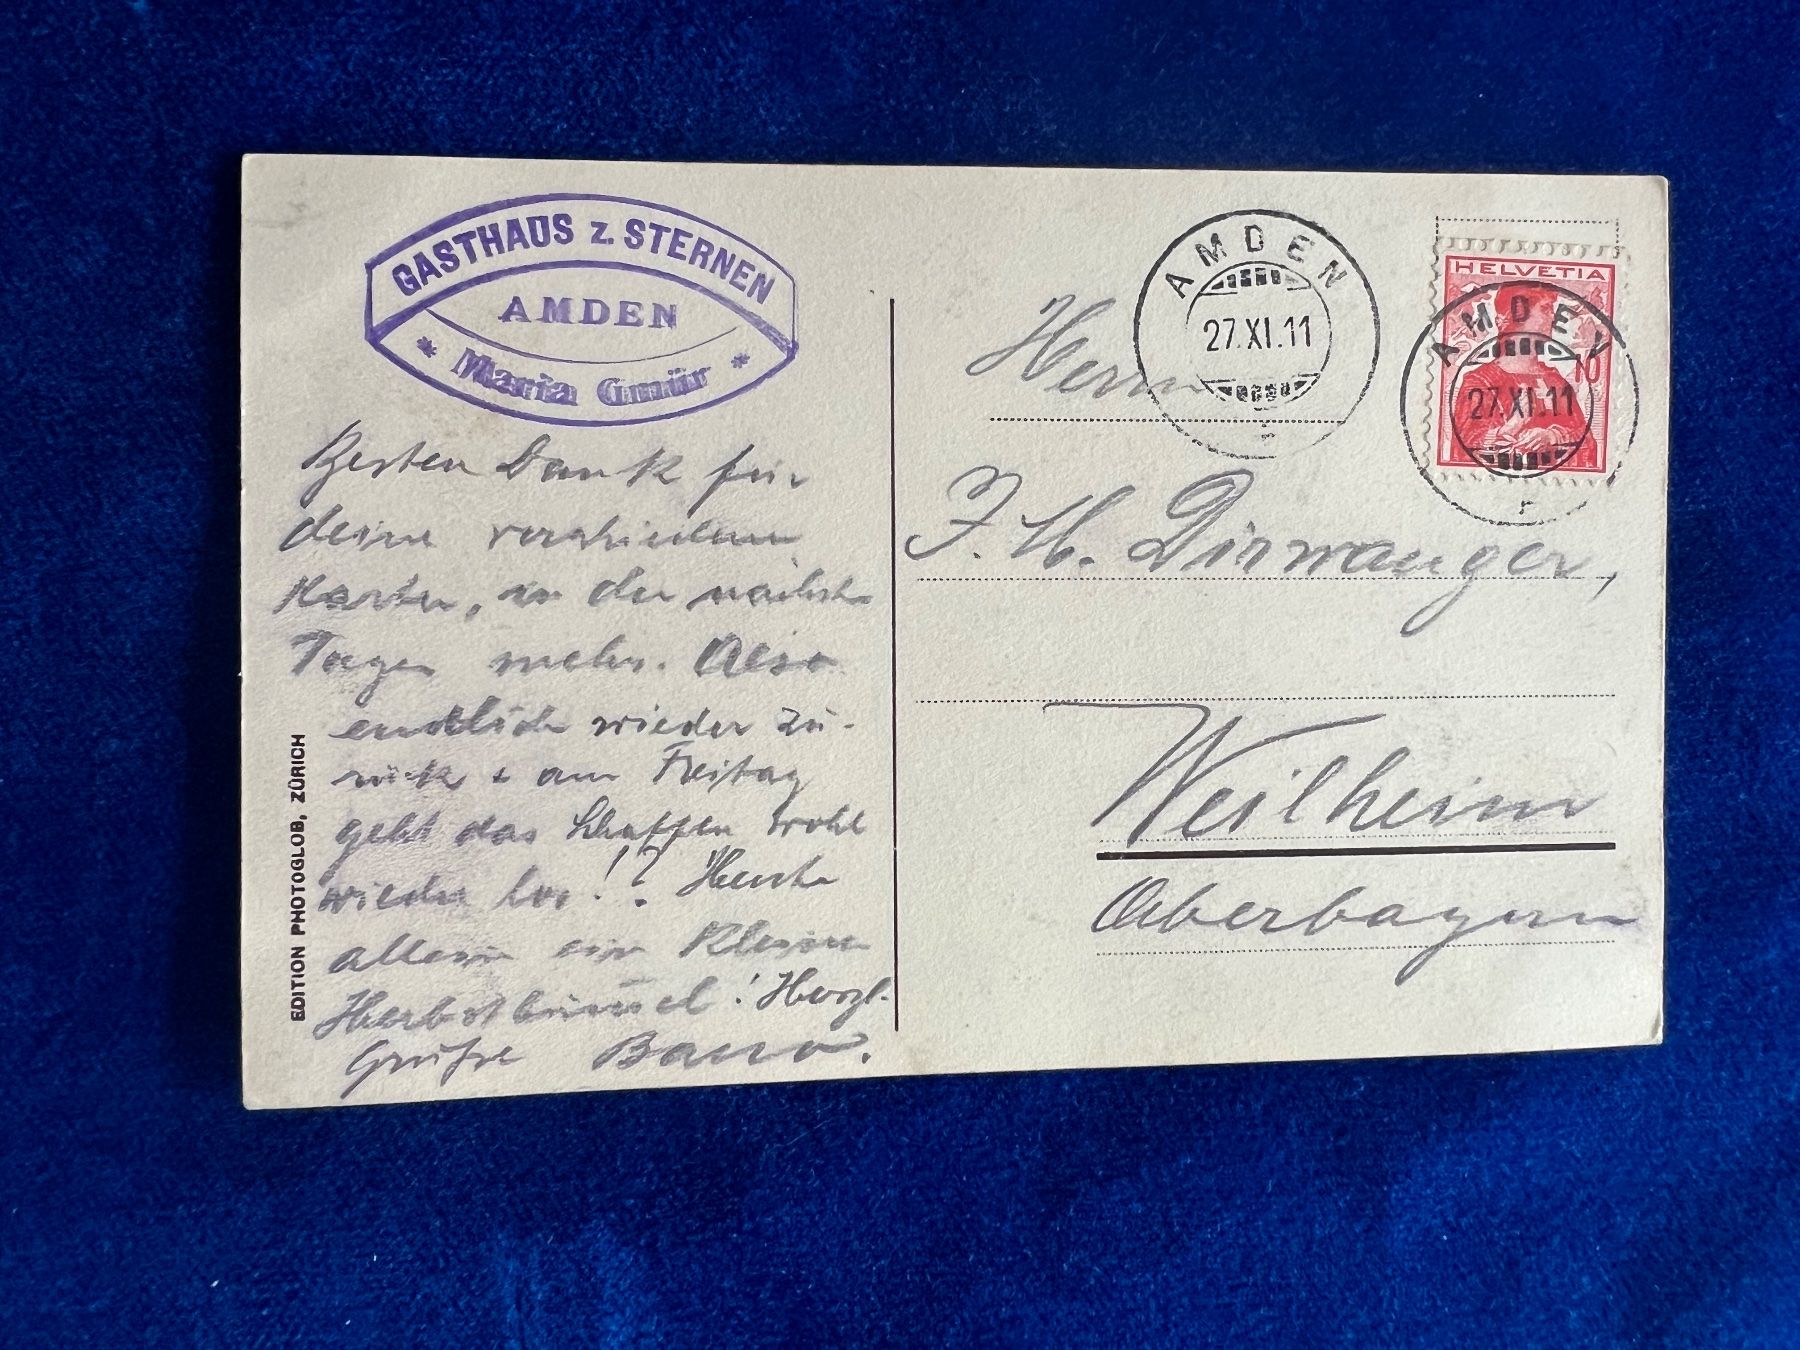 GASTHAUS z. STERNEN
AMDEN
* Maria Gmür *
Besten Dank für
deine verschiedenen
Karten, in den nächsten
Tagen mehr. Also
endlich wieder zu-
rück + am Freitag
geht das Schaffen wohl
wieder los!? Heute
allein ein kleiner
Herbstbummel! Herzl.
Grüße
EDITION PHOTOGLOB, ZÜRICH
AMDEN
27.XI.11
HELVETIA
10
AMDEN
27.XI.11
Herrn
J. H. Dirrwanger,
Weilheim
Oberbayern